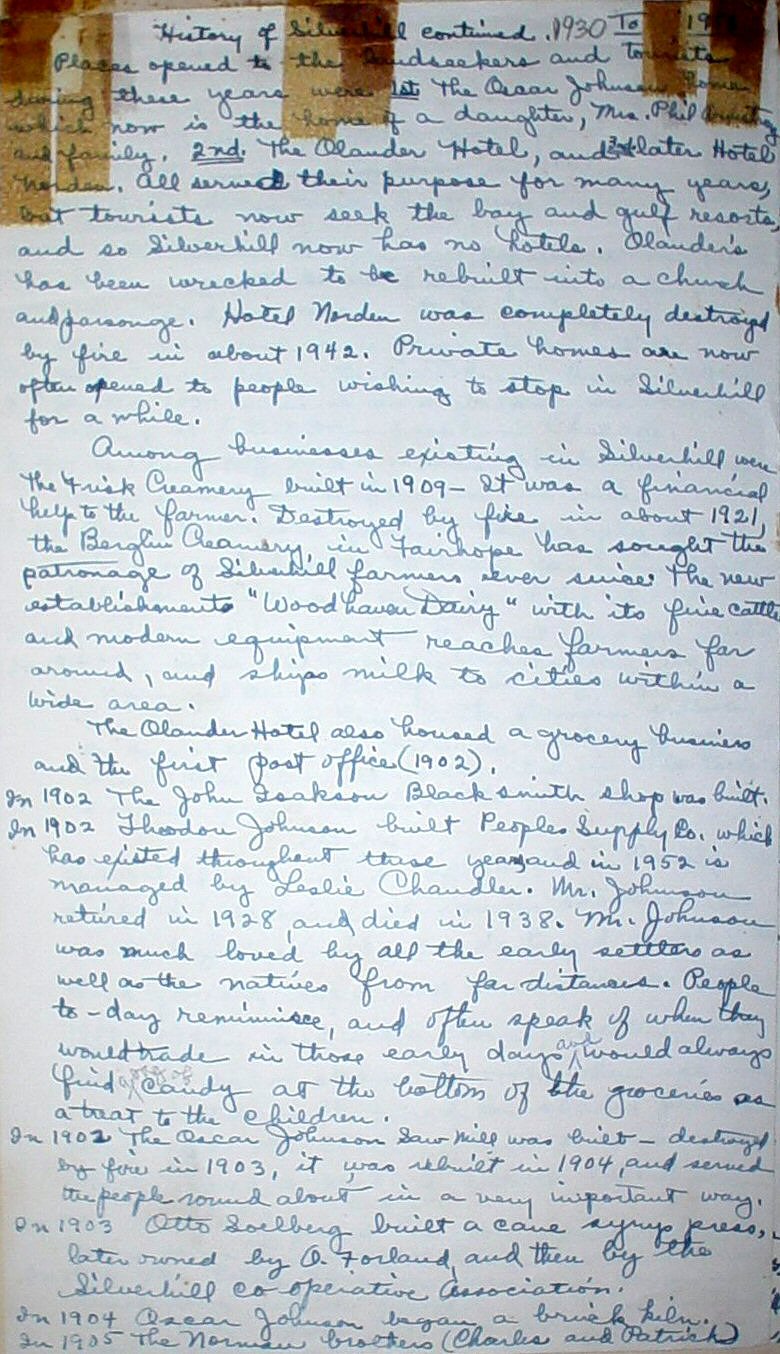 History of Silverhill continued. 1930 To 19
Places opened to the landseekers and tourists
during these years were 1st The Oscar Johnson home
which now is the home of a daughter, Mrs. Phil
and family. 2nd. The Olander Hotel, and 3rd later Hotel
Norden. All served their purpose for many years,
but tourists now seek the bay and gulf resorts,
and so Silverhill now has no hotels. Olander's
has been wrecked to be rebuilt into a church
and parsonge. Hotel Norden was completely destroyed
by fire in about 1942. Private homes are now
often opened to people wishing to stop in Silverhill
for a while.
Among businesses existing in Silverhill were
The Frisk Creamery built in 1909 - It was a financial
help to the farmer. Destroyed by fire in about 1921,
the Berglin Creamery in Fairhope has sought the
patronage of Silverhill farmers ever since. The new
establishments "Woodhaven Dairy" with its fine cattle
and modern equipment reaches farmers far
around, and ships milk to cities within a
wide area.
The Olander Hotel also housed a grocery business
and the first post office (1902).
In 1902 The John Isakson Blacksmith shop was built.
In 1902 Theodor Johnson built Peoples Supply Co. which
has existed throughout these years, and in 1952 is
managed by Leslie Chandler. Mr. Johnson
retired in 1928, and died in 1938. Mr. Johnson
was much loved by all the early settlers as
well as the natives from far distances. People
to-day reminisce, and often speak of when they
would trade in those early days and would always
find a bag of candy at the bottom of the groceries as
a treat to the children.
In 1902 The Oscar Johnson Saw Mill was built - destroyed
by fire in 1903, it was rebuilt in 1904, and served
the people round about in a very important way.
In 1903 Otto Soelberg built a cane syrup press,
later owned by O. Forland, and then by the
Silverhill co-operative Association.
In 1904 Oscar Johnson began a brick kiln.
In 1905 The Norman brothers (Charles and Patrick)